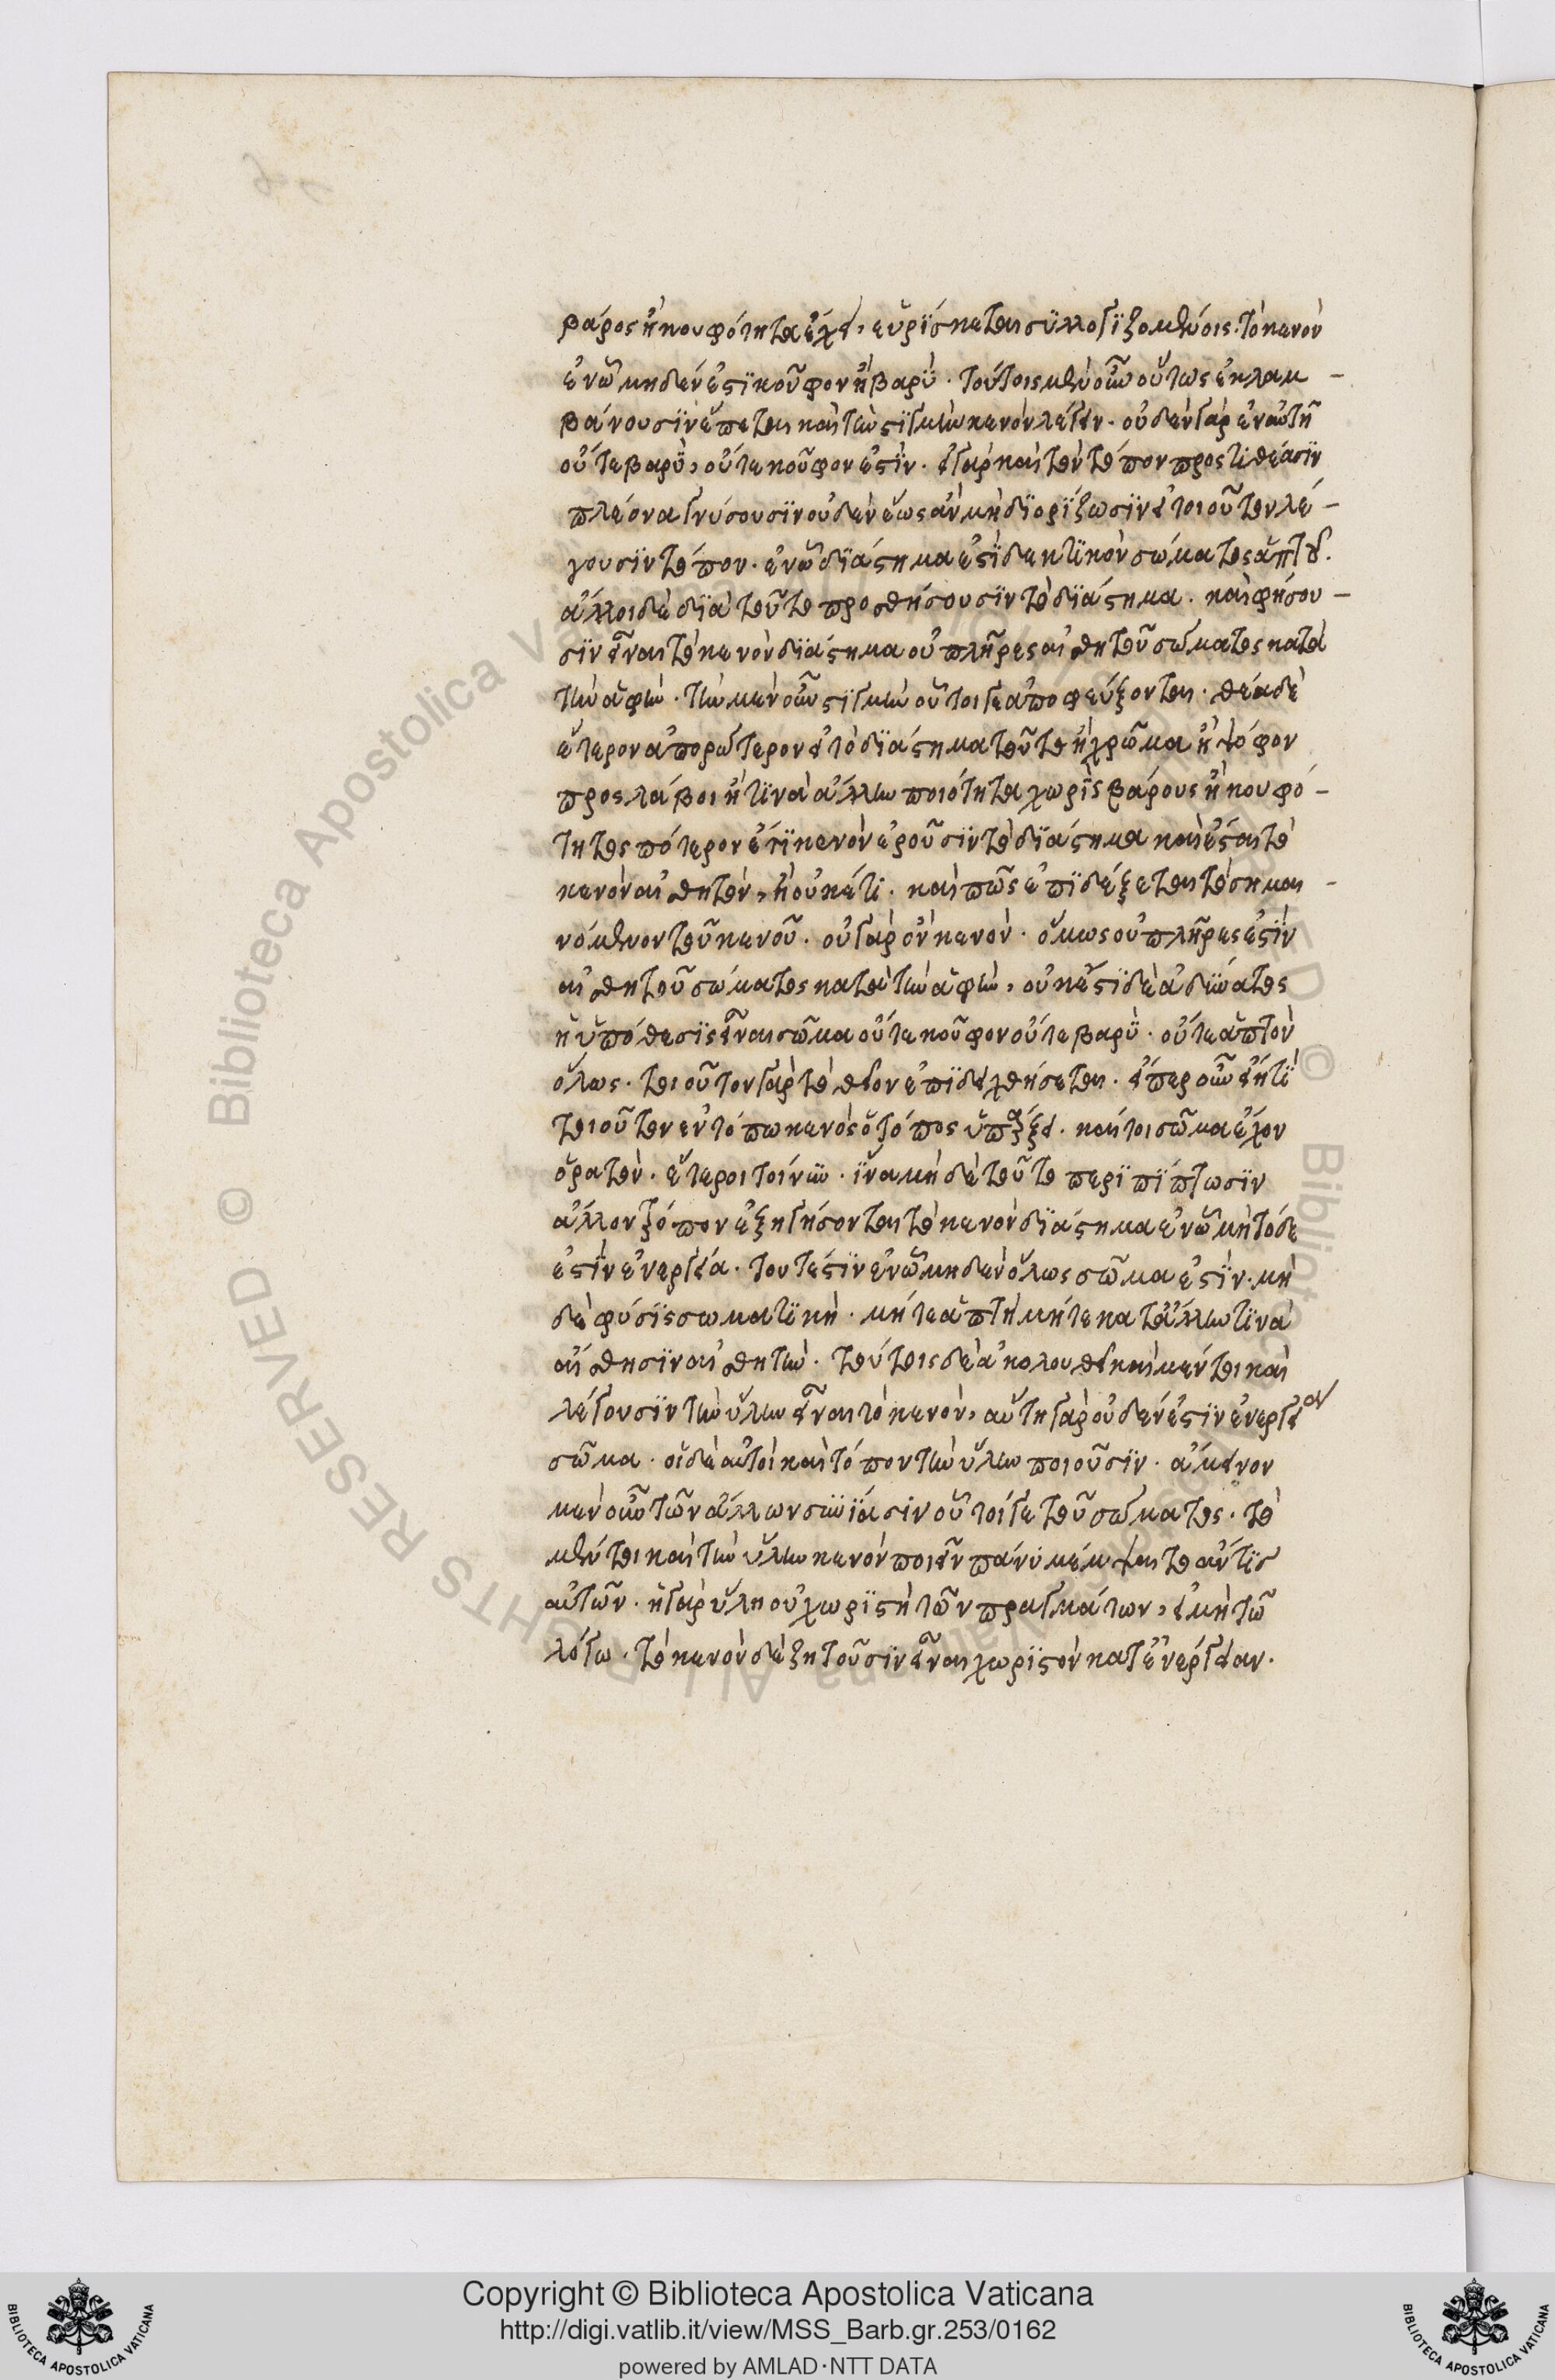 βάρος ἢ κουφότητα ἔχει, εὑρίσκεται συλλογιζομένοις. τὸ κενὸν
ἐν ᾧ μηδέν ἐστι κοῦφον ἢ βαρύ. τούτοις μὲν οὖν οὕτως ἐκλαμ-
βάνουσιν ἕπεται καὶ τὴν στιγμὴν κενὸν λέγειν. οὐδὲν γὰρ ἐν αὐτῇ
οὔτε βαρὺ, οὔτε κοῦφον ἐστὶν. εἰ γὰρ καὶ τὸν τόπον προστιθέασιν
πλέον ἀνύσουσιν οὐδὲν ἕως ἂν μὴ διορίζωσιν εἰ τοιοῦτον λέ-
γουσιν τόπον. ἐν ᾧ διάστημα ἐστὶ δεκτικὸν σώματος ἁπτοῦ.
ἄλλοι δὲ διὰ τοῦτο προσθήσουσιν τὸ διάστημα. καὶ φήσου-
σιν εἶναι τὸ κενὸν διάστημα οὐ πλῆρες αἰσθητοῦ σώματος κατὰ
τὴν ἁφὴν. τὴν μὲν οὖν στιγμὴν οὗτοί γε ἀποφεύξονται. θέα δὲ
ἕτερον ἀπορώτερον εἰ τὸ διάστημα τοῦτο ἢ χρῶμα ἢ ψόφον
προσλάβοι ἢ τινὰ ἄλλην ποιότητα χωρὶς βάρους ἢ κουφό-
τητος πότερον ἔτι κενὸν ἐροῦσιν τὸ διάστημα καὶ ἔσται τὸ
κενὸν αἰσθητὸν, ἢ οὐκέτι. καὶ πῶς ἐπιδέξεται τὸ σημαι-
νόμενον τοῦ κενοῦ. οὐ γὰρ ὂν κενὸν. ὅμως οὐ πλῆρες ἐστὶν
αἰσθητοῦ σώματος κατὰ τὴν ἁφὴν, οὐκ ἔστι δὲ ἀδύνατος
ἡ ὑπόθεσις εἶναι σῶμα οὔτε κοῦφον οὔτε βαρὺ. οὔτε ἁπτὸν
ὅλως. τοιοῦτον γὰρ τὸ θεῖον ἐπιδειχθήσεται. εἴπερ οὖν εἴη τι
τοιοῦτον ἐν τόπω κενὸς ὁ τόπος ὑπάρξει. καίτοι σῶμα ἔχον
ὁρατὸν. ἕτεροι τοίνυν. ἵνα μὴ δὲ τοῦτο περιπίπτωσιν
ἄλλον τρόπον ἐξηγήσονται τὸ κενὸν διάστημα ἐν ᾧ μὴ τόδε
ἐστὶν ἐνεργεία. τουτέστιν ἐν ᾧ μηδὲν ὅλως σῶμα ἐστὶν. μὴ
δὲ φύσις σωματικὴ. μήτε ἁπτὴ μήτε κατὰ ἄλλην τινὰ
αἴσθησιν αἰσθητὴν. τούτοις δὲ ἀκολουθεῖ καὶ μέντοι καὶ
λέγουσιν τὴν ὕλην εἶναι τὸ κενὸν, αὕτη γὰρ οὐδέν ἐστὶν ἐνεργείαν
σῶμα. οἱ δὲ αὐτοὶ καὶ τόπον τὴν ὕλην ποιοῦσιν. ἀμείνον
μὲν οὖν τῶν ἄλλων συνίασιν οὗτοί γε τοῦ σώματος. τὸ
μέντοι καὶ τὴν ὕλην κενὸν ποιεῖν πάνυ μέμψαιτο ἄν τις
αὐτῶν. ἡ γὰρ ὕλη οὐ χωριστὴ τῶν πραγμάτων, εἰ μὴ τῶ
λόγω. τὸ κενὸν δὲ ζητοῦσιν εἶναι χωριστὸν κατ ἐνέργειαν.
Copyright © Biblioteca Apostolica Vaticana
http://digi.vatlib.it/view/MSS_Barb.gr.253/0162
powered by AMLAD·NTT DATA